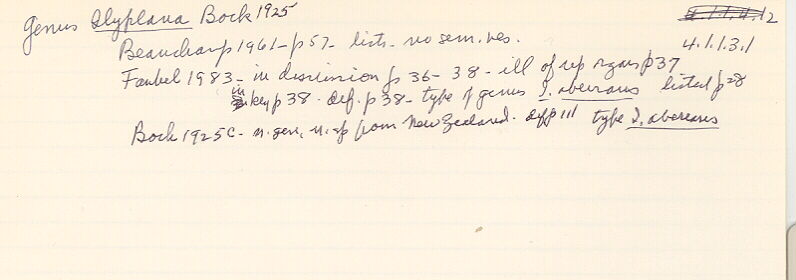 Genus Ilyplana Bock 1925
4.1.1.3.1
Beauchamp 1961 - p 57 - lists - no sem. ves.
Faubel 1983 - in discussion p 36 - 38 - ill of rep organs p 37
in key p 38 - def. p 38 - type of genus I. aberrans listed p 28
Bock 1925c - n. gen, n. sp from New Zealand. def p 111 type I. aberrans